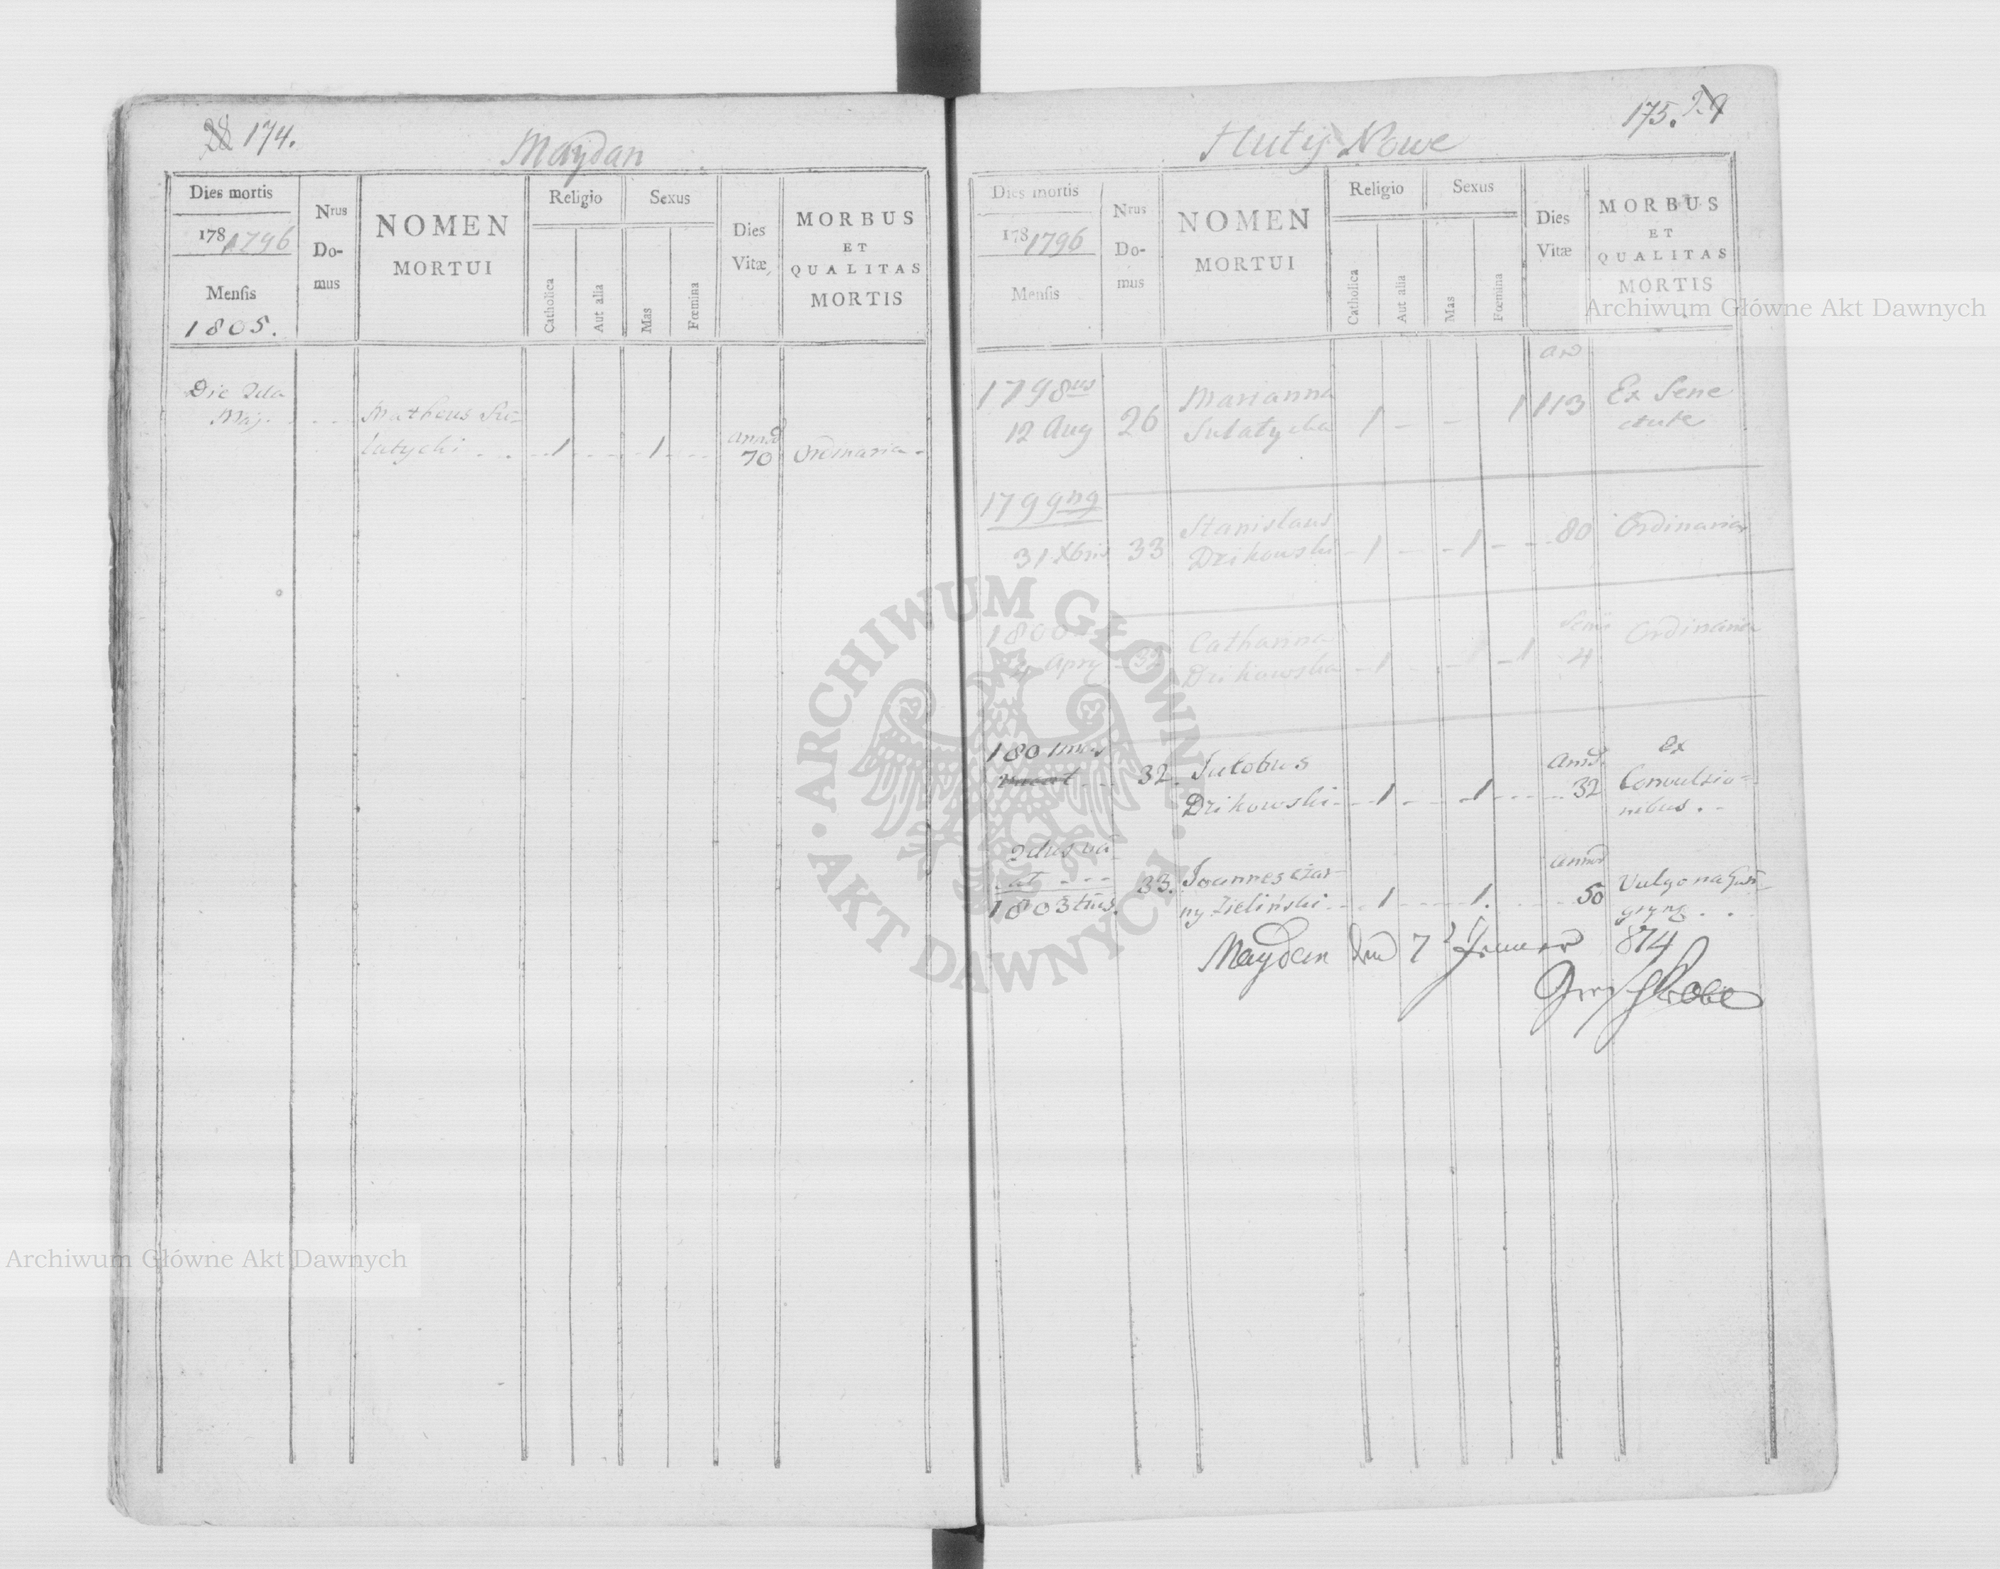 28 174.
Maydan
Dies mortis
178 1796
Mensis
1805.
Nrus
Do-
mus
NOMEN
MORTUI
Religio
Catholica
Aut alia
Sexus
Mas
Fœmina
Dies
Vitæ
MORBUS
ET
QUALITAS
MORTIS
Die 2da
Maj. - - - Matheus Su-
latychi - - - 1 - - - 1 - - - annor 70 Ordinaria -
175. 29
Huty Nowe
Dies mortis
178 1796
Mensis
Nrus
Do-
mus
NOMEN
MORTUI
Religio
Catholica
Aut alia
Sexus
Mas
Fœmina
Dies
Vitæ
MORBUS
ET
QUALITAS
MORTIS
1798us
12 Aug 26 Marianna
Sulatycka 1 - - 1 113 Ex Sene
ctute
1799
31 Xbris 33 Stanislaus
Dzikowski - 1 - - 1 - - 80 Ordinaria
1800
4 Apry 32 Catharina
Dzikowska - 1 - - 1 4 Ordinaria
1801mus
32. Jakobus
Dzikowski - - 1 - - 1 - - - 32 ex
Convulsio-
nibus. -
2dus va-
cat - - -
1803tius. 33. Joannes czar-
ny Zieliński - - 1 - - - 1. - - - 50 Vulgo na
Maydan 7 Jenner 814
Archiwum Główne Akt Dawnych
ARCHIWUM GŁÓWNE · AKT DAWNYCH ·
Archiwum Główne Akt Dawnych